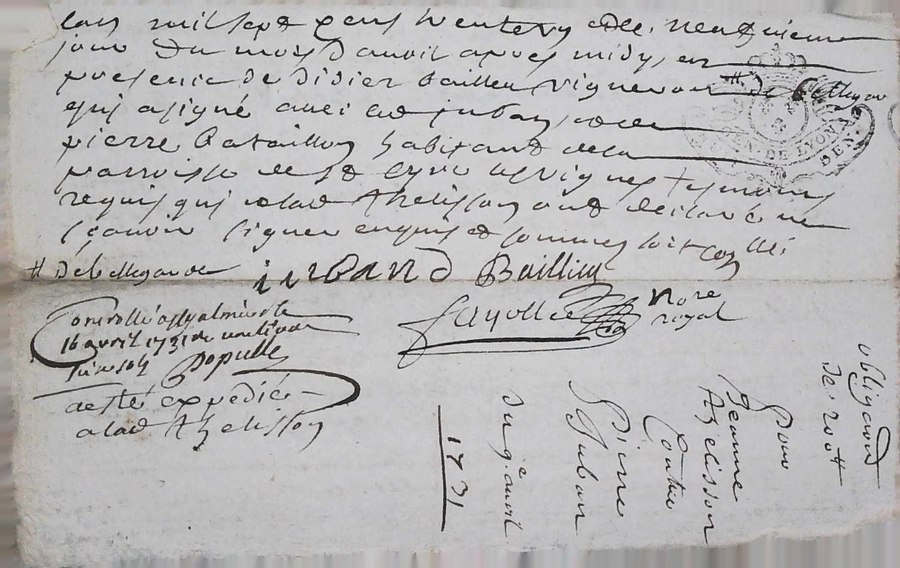 lan mil sept cens trente un et le neufvieme
jour du mois davril apres midy, en
presence de didier bailleu vigneron # de bellegar
qui a signé avec led juban, et de
pierre bataillon habitant de la
parroisse de st Cyr les vignes tesmoins
requis qui et lad Thelisson ont declaré ne
sçavoir signer enquis et sommes soit
# de bellegarde
iuband Baillieu
Fayolle nore
royal
Controllé a St galmier le
16 avril 1731
Populle
a esté expedié
a lad Thelisson
GEN. DE LYON
DEN
obligation
de
Pour
Jeanne
Thelisson
Contre
Pierre
Juban
du 9e avril
1731